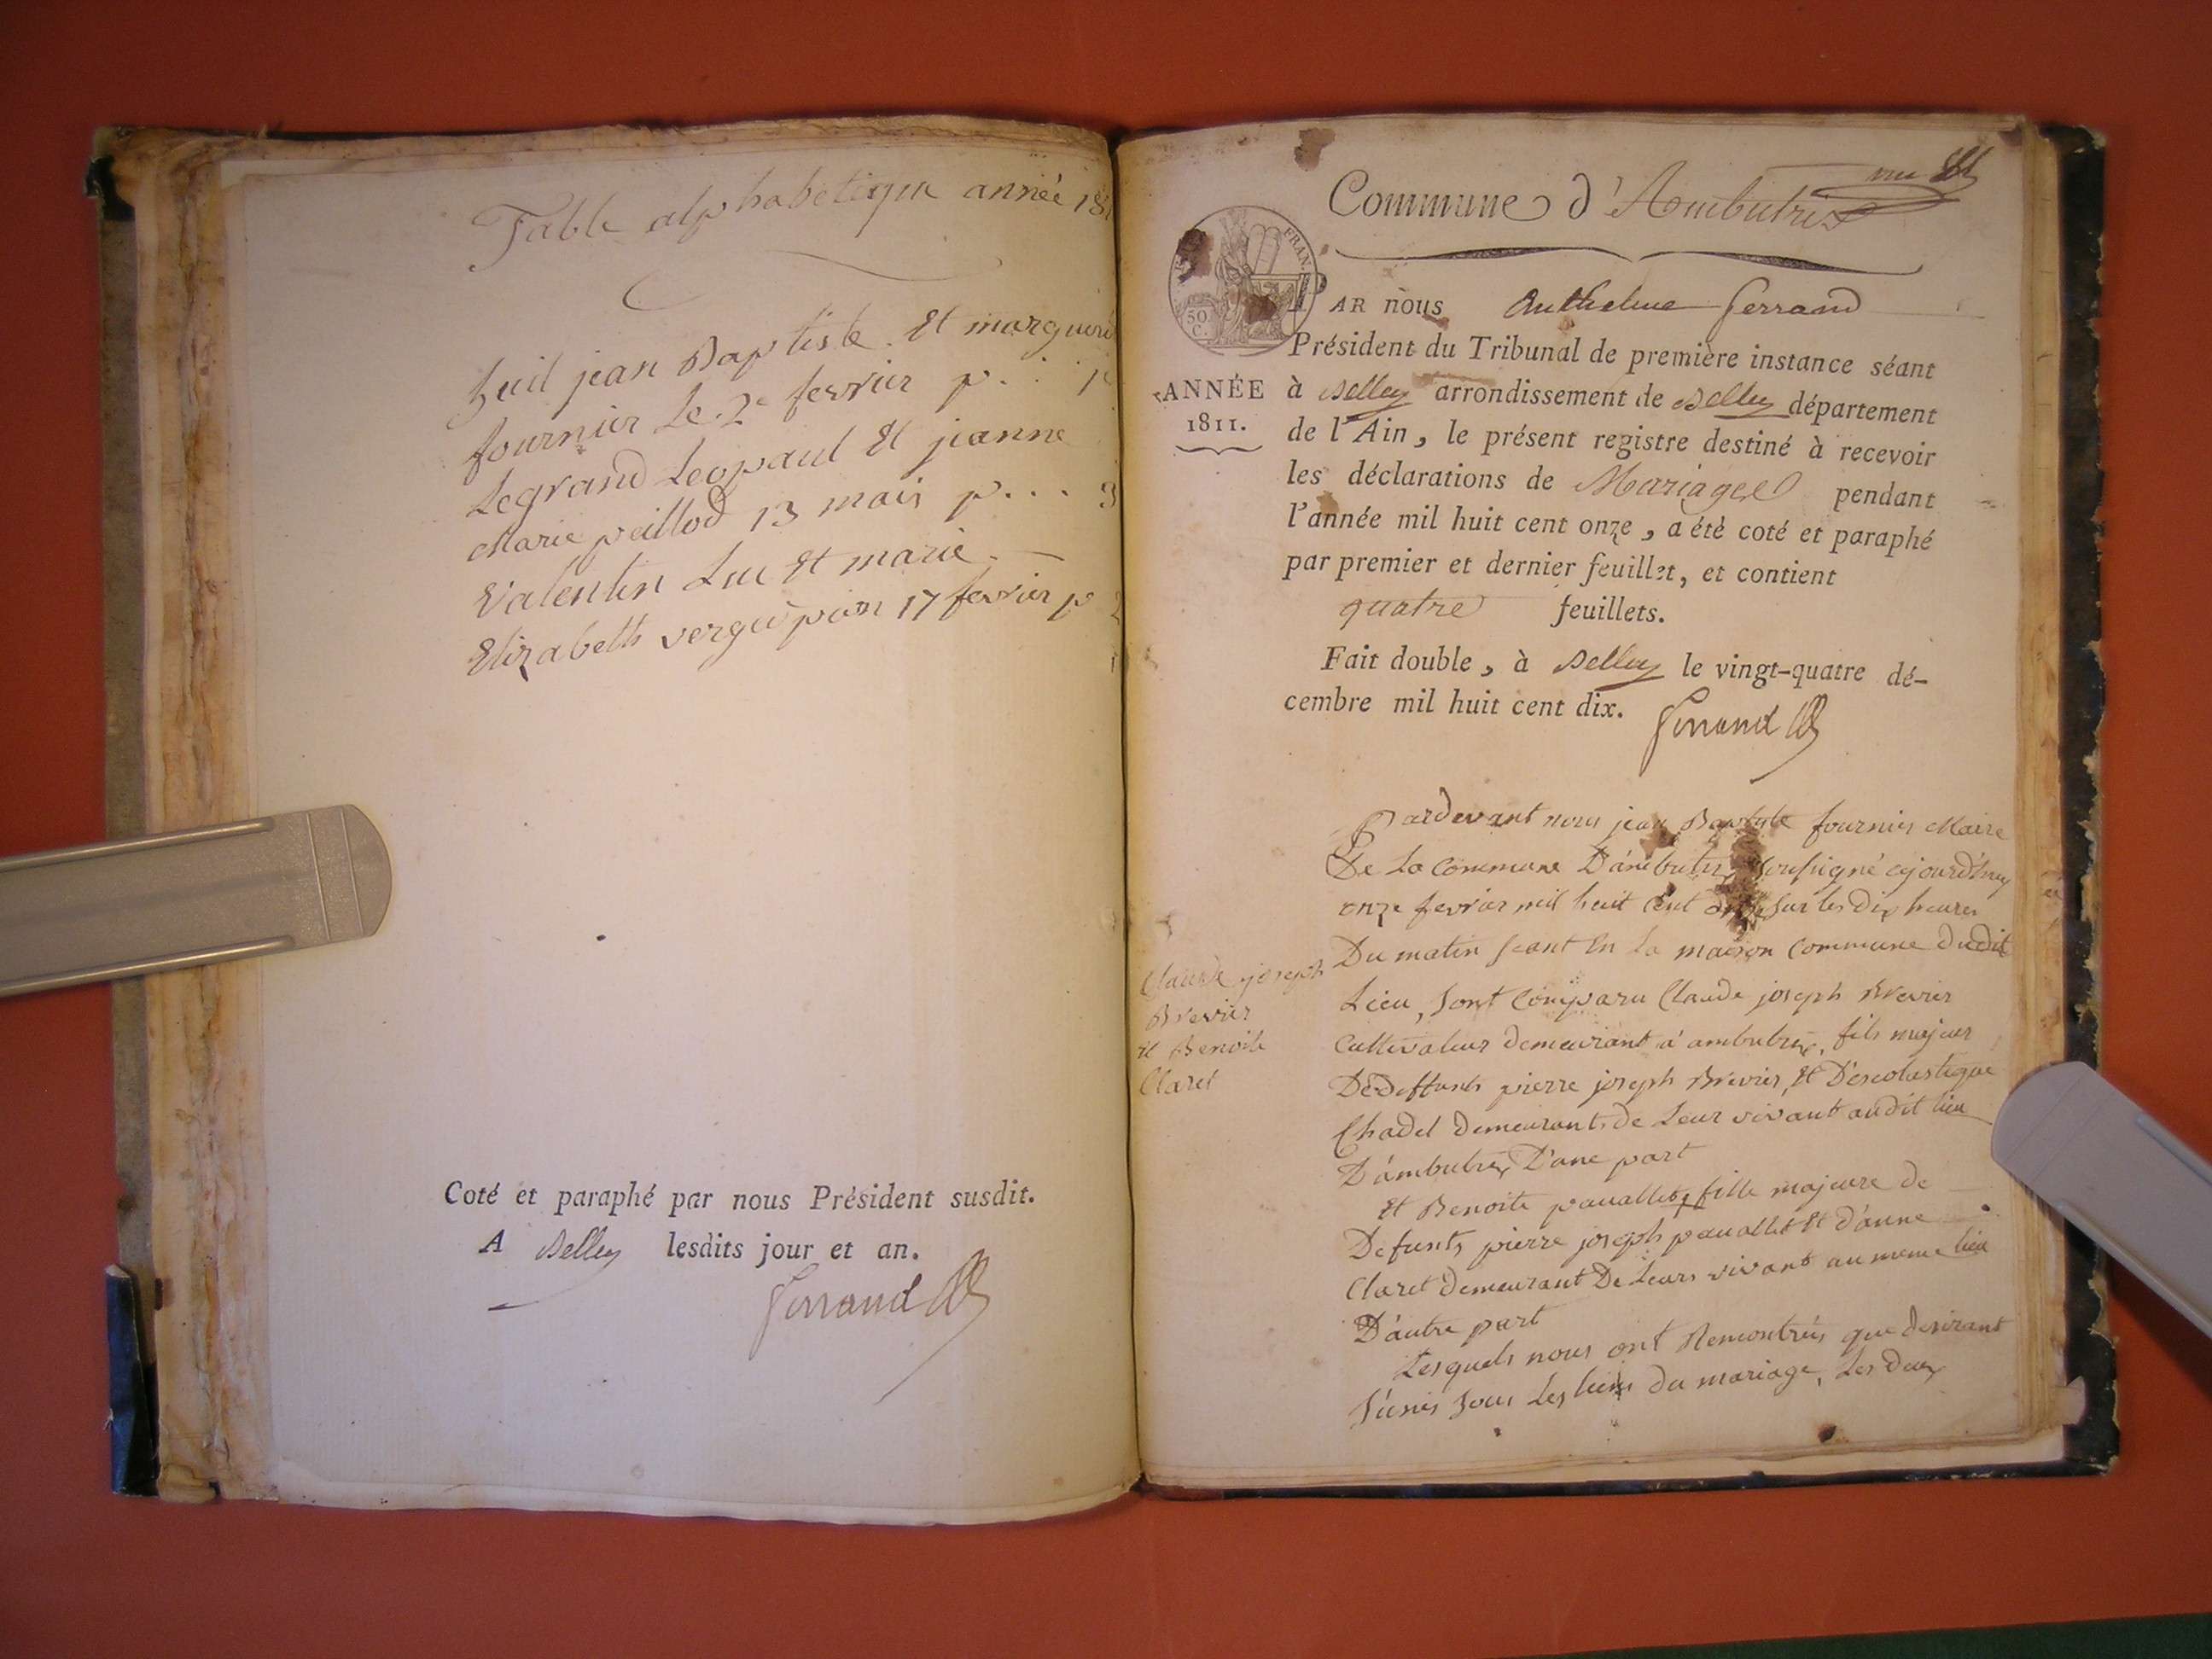 Table alphabetique année 181
Jean Baptiste Et marguerit
fournier Le 2e fevrier p. . . 1
Legrand Leopaul Et jeanne
Marie peillod 13 mais p. . . 3
Valentin Luc Et marie
Elizabeth verguipion 17 fevrier p 2
Coté et paraphé par nous Président susdit.
A Belley lesdits jour et an.
Ferrand
Commune d'Ambutrix
FRAN.
50
C.
ANNÉE
1811.
PAR nous Anthelme ferrand
Président du Tribunal de première instance séant
à Belley arrondissement de Belley département
de l'Ain, le présent registre destiné à recevoir
les déclarations de Mariages pendant
l'année mil huit cent onze, a été coté et paraphé
par premier et dernier feuillet, et contient
quatre feuillets.
Fait double, à Belley le vingt-quatre dé-
cembre mil huit cent dix.
Ferrand
Claude joseph
Brevier
et Benoite
Claret
Pardevant nous jean Baptiste fournier Maire
De La Commune D'ambutrix soussigné
onze fevrier mil huit Cent onze Sur les Dix heures
Du matin seant En La maison Commune Dudit
Lieu, Sont Comparu Claude joseph Brevier
Cultivateur demeurant a ambutrix, fils majeur
De deffunts pierre joseph Brevier, Et D'escolastique
Chadel demeurants de Leur vivant audit lieu
D'ambutrix D'une part
Et Benoite pauallet fille majeure de
Defunts pierre joseph pauallet Et d'anne
Claret demeurant De Leurs vivant au meme lieu
D'autre part
Lesquels nous ont Remontrés que desirant
S'unir Sous Les liens du mariage, Les deux